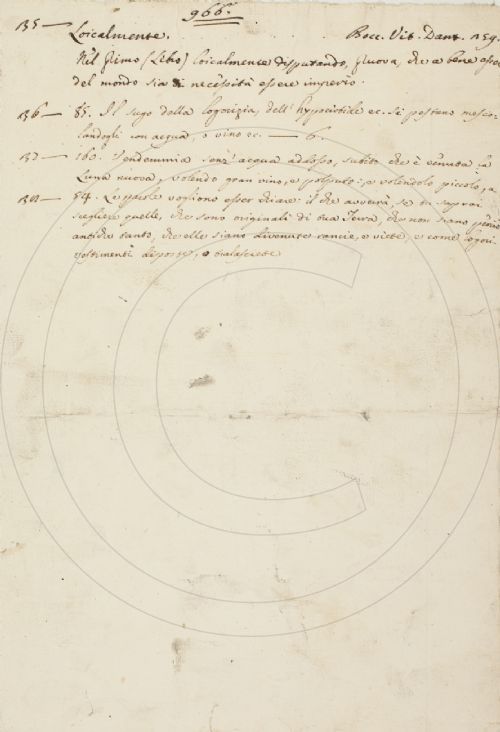 966.
135 — Loicalmente. Bocc. Vit. Dant. 259.
Nel primo (Libro) loicalmente disputando, pruova, che a bene essere
del mondo sia di necessità essere imperio.
136 — 85. Il sugo della logorizia, dell' hyppocistide ec. Si pestano mesco-
landogli con acqua, o vino ec. — 6.
137 — 160. Vendemmia senz' acqua addosso, subito che è
Luna nuova, volendo gran vino, e polputo: e volendolo piccolo, a
138 — 54. Le parole vogliono esser chiare: il che avverrà, se tu saprai
scegliere quelle, che sono originali di tua Terra, che non siano perciò
antiche tanto, che elle siano divenute rancie, e viete, e come logori
vestimenti diposte, o tralasciate